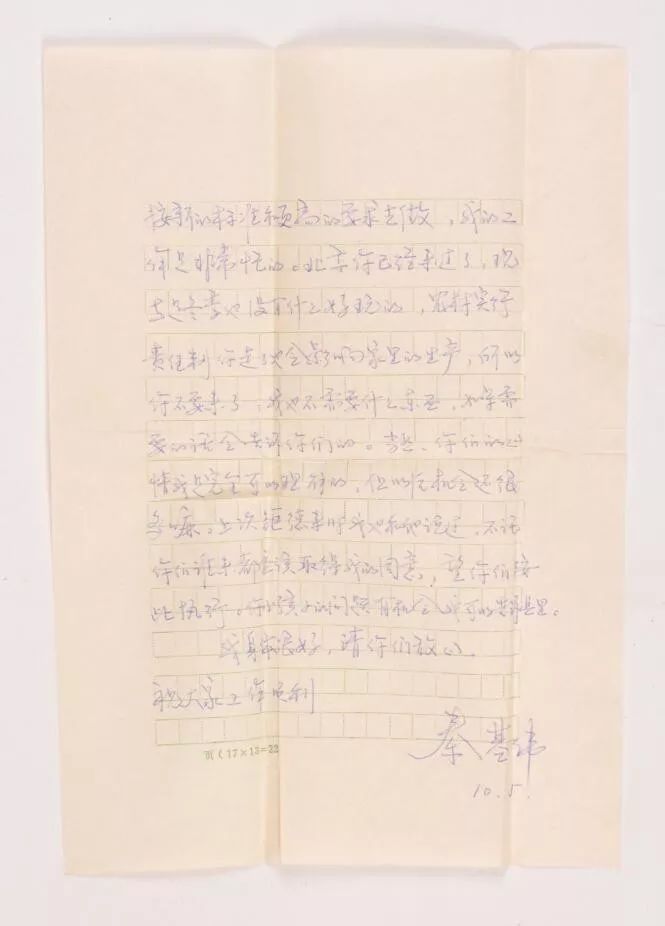 按新的标准和更高的要求去做，我的工
作是非常忙的。北京你已经来过了，现
在是冬季也没有什么好玩的，农村实行
责任制你走了也会影响家里的生产，所以
你不要来了，我也不需要什么东西，如果需
要的话会告诉你们的。当然，你们的心
情我是完全可以理解的，但以后机会还很
多嘛，上次钜德来时我也和他说过，不论
你们谁来都应该取得我的同意，望你们按
此执行。你的问题有机会我可以告诉县里。
我身体很好，请你们放心。
祝大家工作顺利
秦基伟
10.5.
页(17×13=22